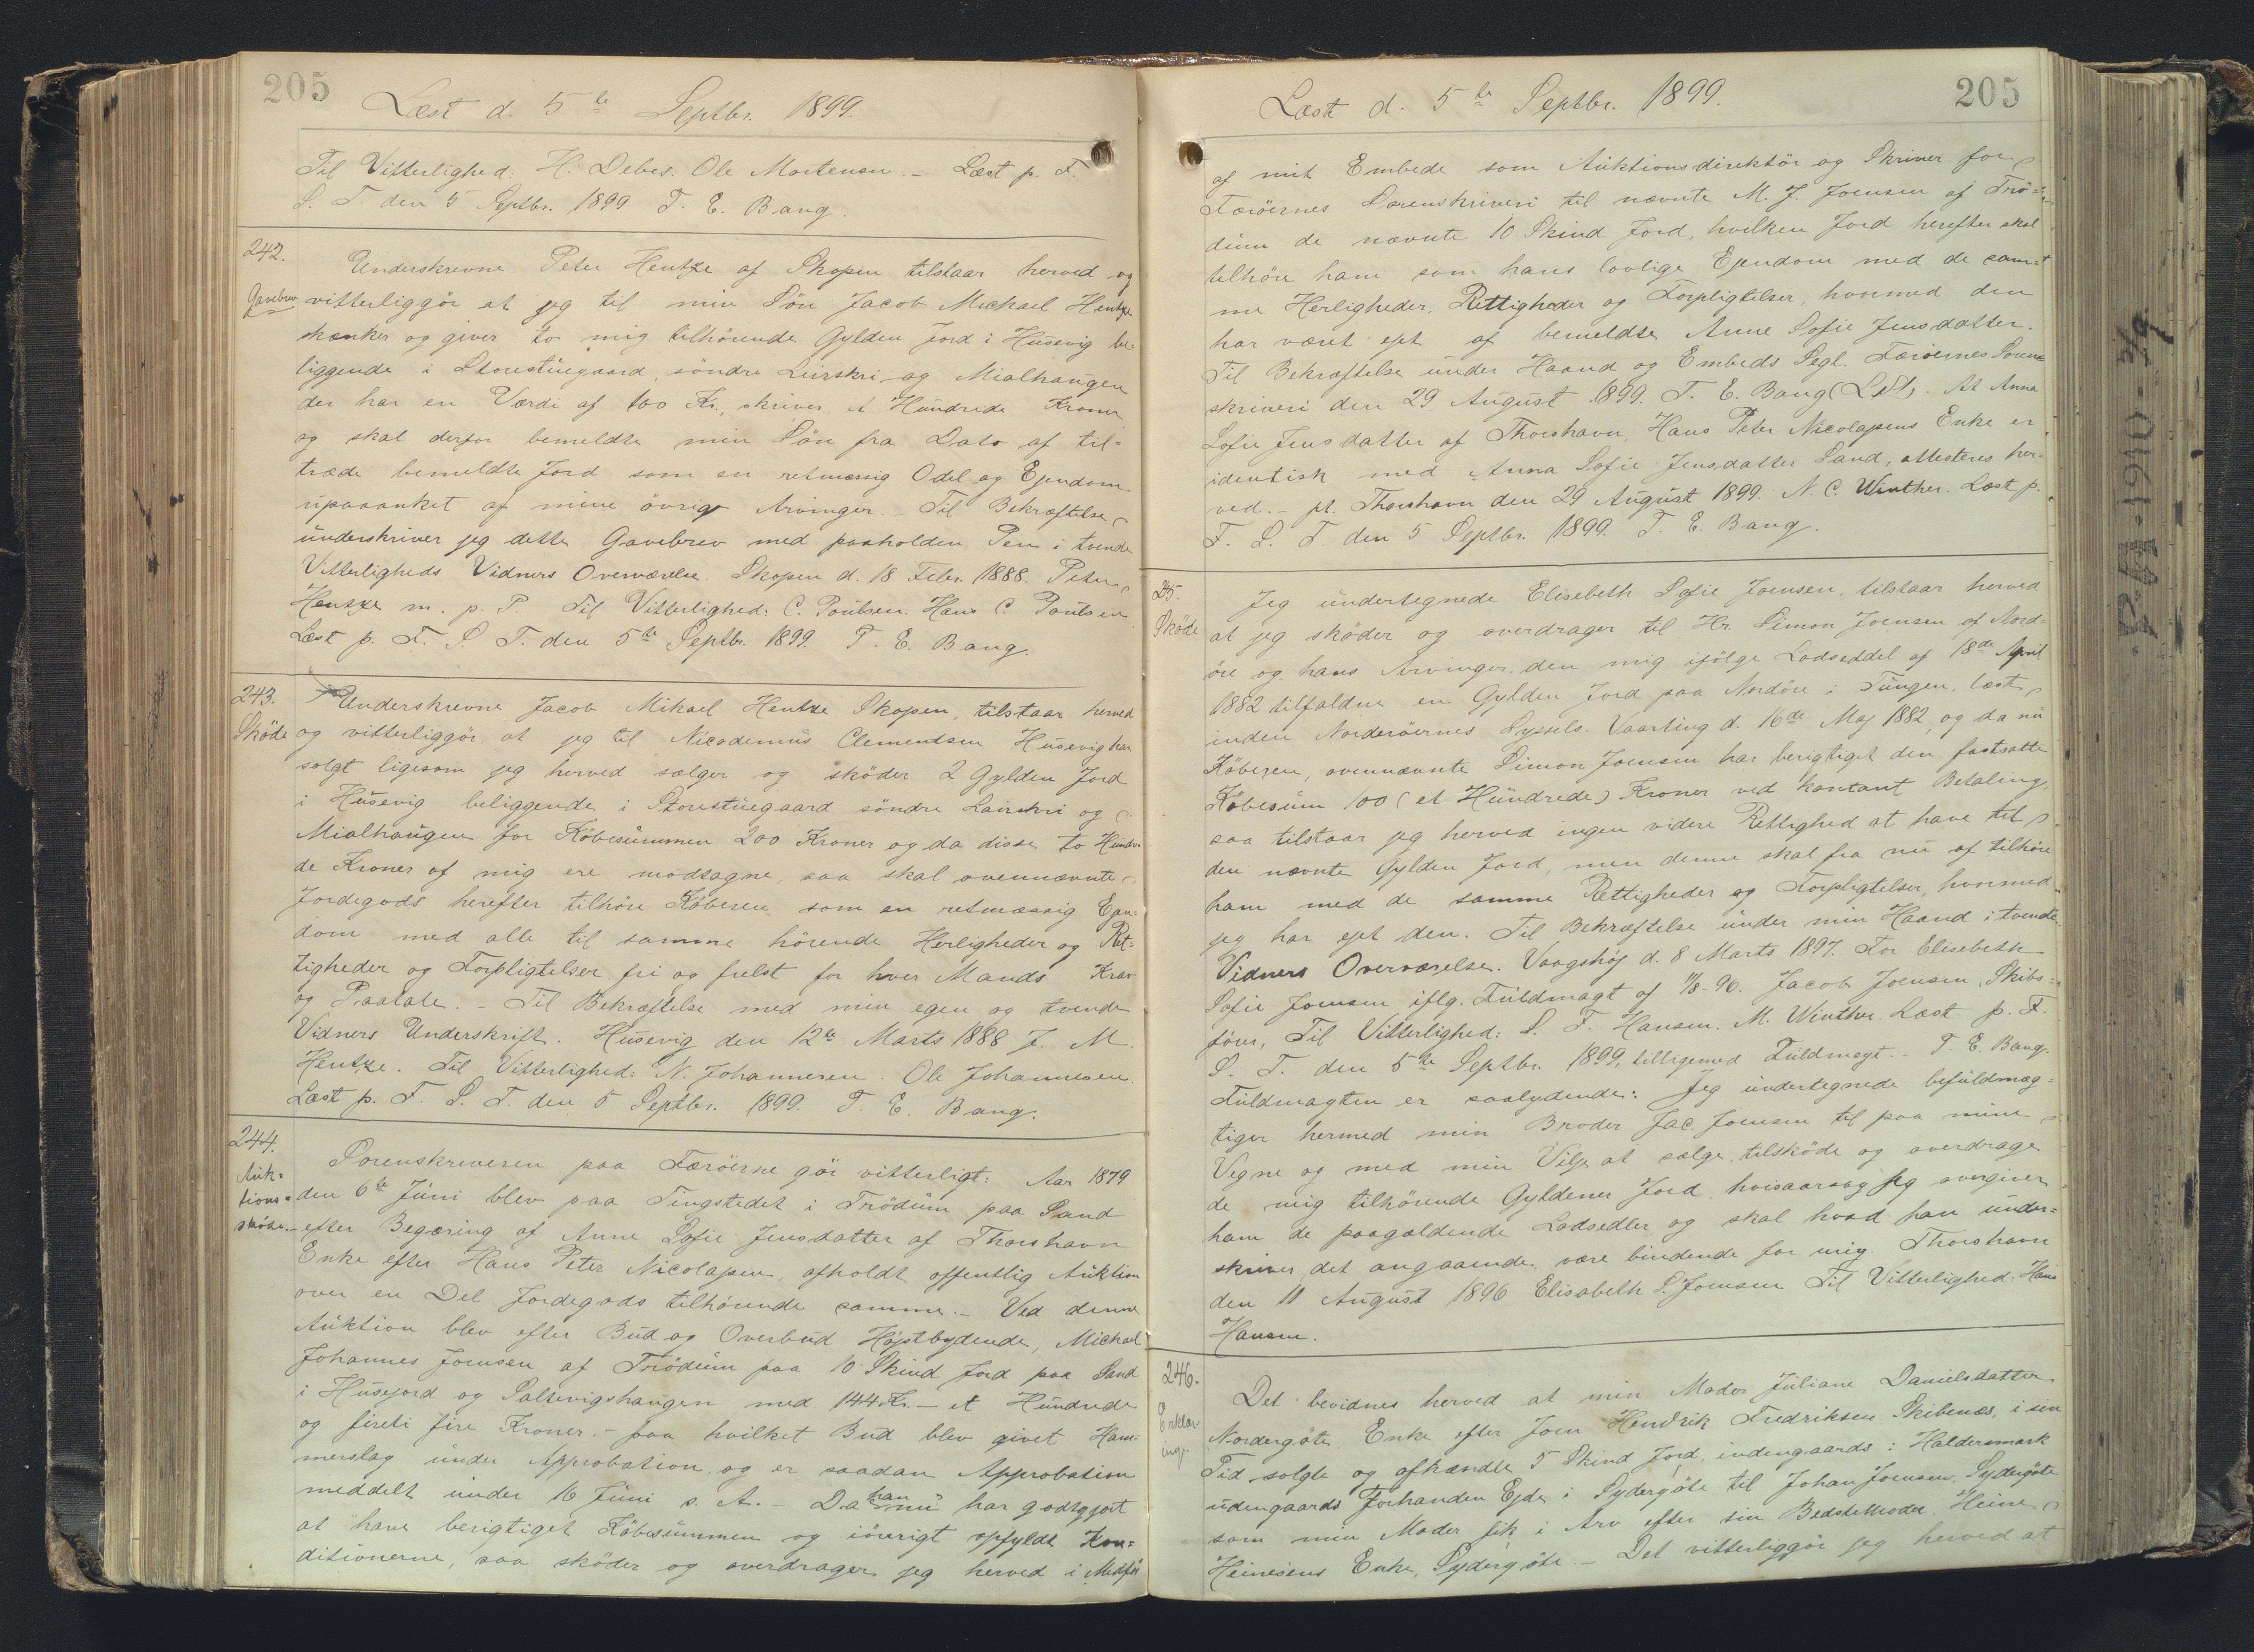 205
Læst d. 5te Septbr. 1899.
Til Vitterlighed: H. Debes. Ole Mortensen. - Læst p. F.
S. T. den 5 Septbr. 1899 T. E. Bang.
242.
Gavebrev
Underskrevne Peter Hentze af Skopen tilstaar herved og
vitterliggör at jeg til min Sön Jacob Michael Hentze
skænker og giver to mig tilhörende Gylden Jord i Husevig be=
liggende i Storestuegaard, söndre Leirskri og Mialhaugen
der har en Værdi af 100 Kr., skriver et Hundrede Kroner
og skal derfor bemeldte min Sön fra Dato af til=
træde bemeldte Jord som en retmæssig Odel og Ejendom
upaaanket af mine övrige Arvinger. - Til Bekræftelse
underskriver jeg dette Gavebrev med paaholden Pen i tvende
Vitterligheds Vidners Overværelse. Skopen d. 18 Febr. 1888. Peter
Hentze m. p. P. Til Vitterlighed: C. Poulsen. Hans C Poulsen.
Læst p. F. S. T. den 5te Septbr. 1899. T. E. Bang.
243.
Sköde
Underskrevne Jacob Mikael Hentze Skopen, tilstaar herved
og vitterliggör at jeg til Nicodemus Clementsen Husevig har
solgt ligesom jeg herved sælger og sköder 2 Gylden Jord
i Husevig beliggende i Storestuegaard söndre Lairskri og
Mialhaugen for Köbesummen 200 Kroner og da disse to Hundre
de Kroner af mig ere modtagne, saa skal ovennævnte
Jordegods herefter tilhöre Köberen som en retmæssig Ejen=
dom med alle til samme hörende Herligheder og Ret=
tigheder og Forpligtelser fri og frelst for hver Mands Krav
og Paatale. - Til Bekræftelse med min egen og tvende
Vidners Underskrift. Husevig den 12te Marts 1888 J. M.
Hentze. Til Vitterlighed: N. Johannesen. Ole Johannesen.
Læst p. F. S. T. den 5 Septbr. 1899. T. E. Bang.
244.
Auk=
tions=
sköde.
Sorenskriveren paa Færöerne gör vitterligt: Aar 1879
den 6te Juni blev paa Tingstedet i Trödum paa Sand
efter Begæring af Anne Sofie Jensdatter af Thorshavn
Enke efter Hans Peter Nicolajsen, afholdt offentlig Auktion
over en Del Jordegods tilhörende samme. - Ved denne
Auktion blev efter Bud og Overbud Højstbydende, Michael
Johannes Joensen af Trödum paa 10 Skind Jord paa Sand
i Husejord og Saltevigshaugen med 144 Kr. - et Hundrede
og fireti fire Kroner. - paa hvilket Bud blev givet Ham=
merslag under Approbation, og er saadan Approbation
meddelt under 16 Juni s. A. - Da han nu har godtgjort
at have berigtiget Köbesummen og iövrigt opfyldt Kon=
ditionerne, saa sköder og overdrager jeg herved i Medför
205
Læst d. 5te Septbr. 1899.
af mit Embede som Auktionsdirektör og Skriver for
Færöernes Sorenskriveri til nævnte M. J. Joensen af Trö=
dum de nævnte 10 Skind Jord, hvilken Jord herefter skal
tilhöre ham som hans lovlige Ejendom med de sam=
me Herligheder, Rettigheder og Forpligtelser, hvormed den
har været ejet af bemeldte Anne Sofie Jensdatter.
Til Bekræftelse under Haand og Embeds Segl. Færöernes Soren=
skriveri den 29 August 1899. T. E. Bang (L.S.). At Anna
Sofie Jensdatter af Thorshavn, Hans Peter Nicolajsens Enke er
identisk med Anna Sofie Jensdatter Sand, attesteres her=
ved. - pt. Thorshavn den 29 August 1899. N. C. Winther. Læst p.
F. S. T. den 5 Septbr. 1899. T. E. Bang.
245.
Sköde
Jeg undertegnede Elisebeth Sofie Joensen, tilstaar herved
at jeg sköder og overdrager til Hr. Simon Joensen af Nord=
öre og hans Arvinger den mig ifölge Lodseddel af 18de April
1882 tilfaldne en Gylden Jord paa Nordöre i Tungen, læst
inden Norderöernes Syssels Vaarting d. 16de Maj 1882, og da nu
Köberen, ovennævnte Simon Joensen har berigtiget den fastsatte
Köbesum 100 (et Hundrede) Kroner ved kontant Betaling,
saa tilstaar jeg herved ingen videre Rettighed at have til
den nævnte Gylden Jord, men denne skal fra nu af tilhöre
ham med de samme Rettigheder og Forpligtelser, hvormed
jeg har ejet den. Til Bekræftelse under min Haand i tvende
Vidners Overværelse. Vaagshöj d. 8 Marts 1897. For Elisebeth
Sofie Joensen iflg. Fuldmagt af 11/8-96. Jacob Joensen, Skibs=
förer, Til Vitterlighed: S. F. Hansen. M. Winther. Læst p. F.
S. T. den 5te Septbr. 1899, tilligemed Fuldmagt. - T. E. Bang.
Fuldmagten er saalydende: Jeg undertegnede befuldmæg=
tiger hermed min Broder Jac. Joensen til paa mine
Vegne og med min Vilje at sælge, tilsköde og overdrage
de mig tilhörende Gyldener Jord, hvisaarsag jeg overgiver
ham de paagældende Lodsedler og skal hvad han under=
skriver det angaaende, være bindende for mig. Thorshavn
den 11 August 1896 Elisabeth S. Joensen Til Vitterlighed: Hans
Hansen.
246.
Erklæ=
ring.
Det bevidnes herved at min Moder Juliane Danielsdatter
Nordergöte, Enke efter Joen Hendrik Fredriksen Skibenæs, i sin
Tid solgte og afhændte 5 Skind Jord, indengaards: Haldersmark
udengaards Forhanden Ejde i Sydergöte til Johan Joensen, Sydergöte
som min Moder fik i Arv efter sin Bedstemoder Heine
Heinesens Enke, Sydergöte. - Det vitterliggör jeg herved at
PAA-1910-3/9